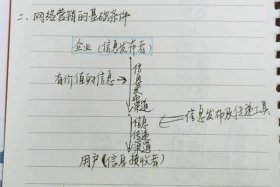 二、网络营销的基础条件
企业（信息发布者）
有价值的信息
信息
渠道
信息传递渠道
信息发布及传递工具
用户（信息接收者）